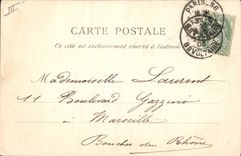 III
CARTE POSTALE
Ce côté est exclusivement réservé à l'adresse
PARIS
Mademoiselle Laurent
11 Boulevard Gazzino
à Marseille
Bouches du Rhône